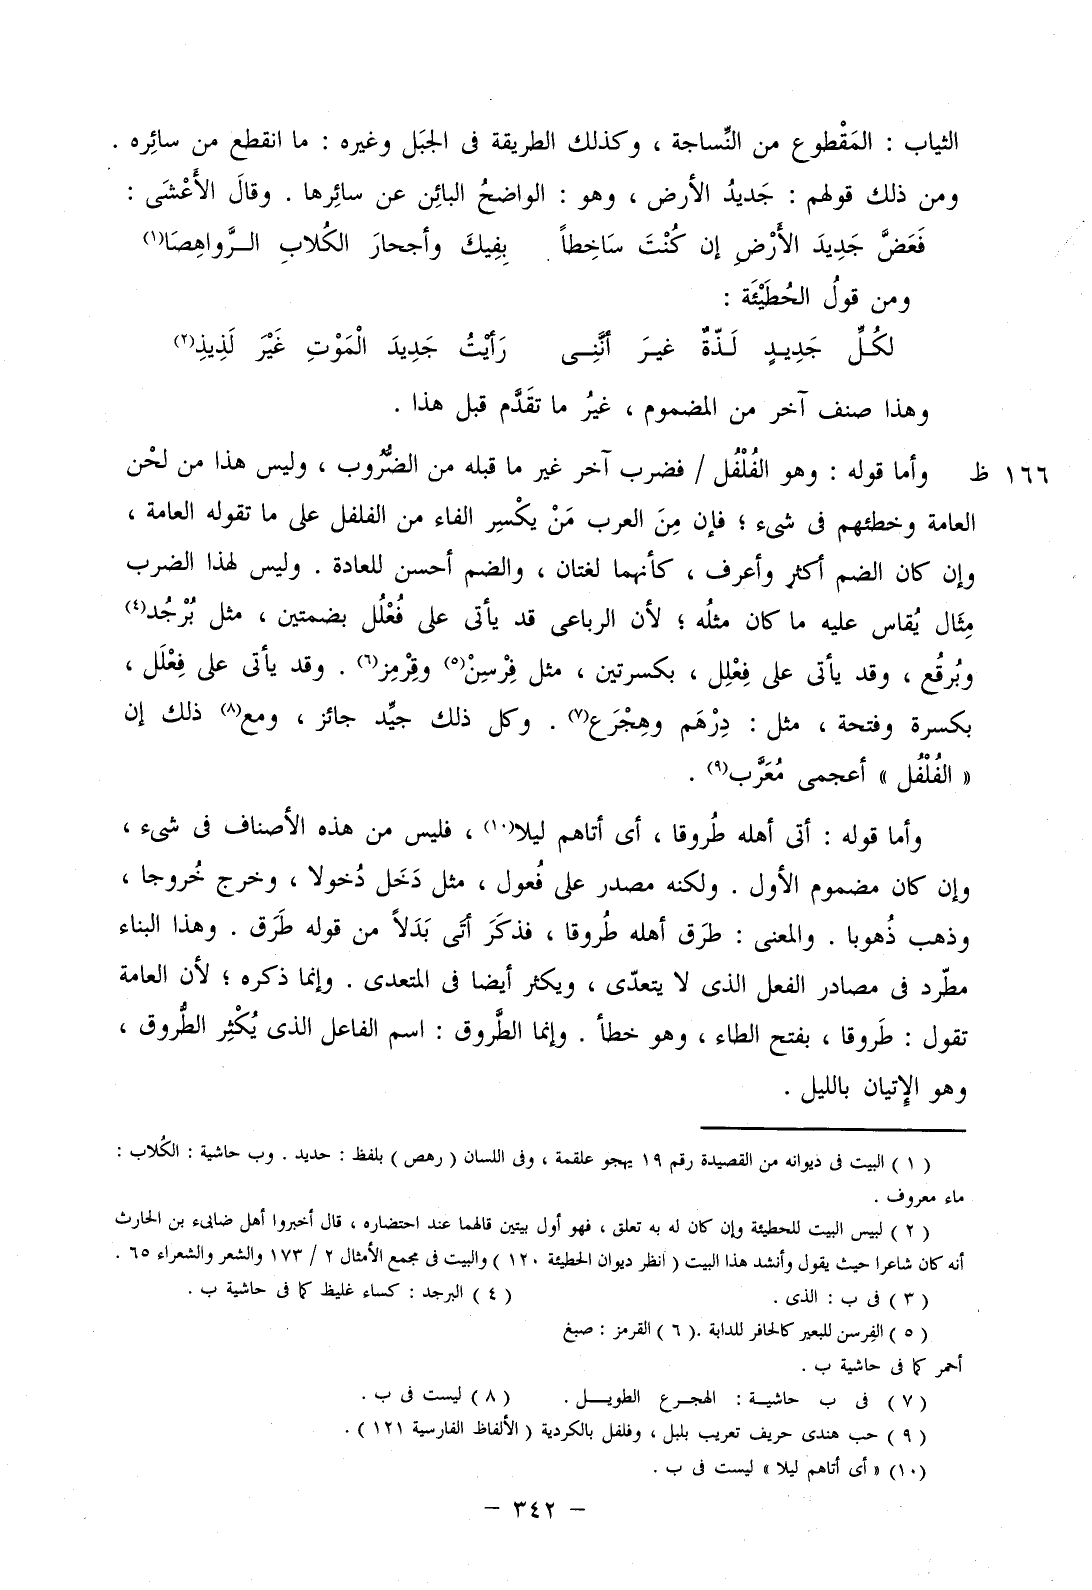 الثياب : المَقْطوع من النِّساجة ، وكذلك الطريقة فى الجبَل وغيره : ما انقطع من سائِره .
ومن ذلك قولهم : جَديدُ الأرض ، وهو : الواضحُ البائِن عن سائِرها . وقالَ الأَعْشَى :
فَعَضَّ جَدِيدَ الأَرْضِ إن كُنْتَ سَاخِطاً بِفِيكَ وأجحارَ الكُلابِ الرَّواهِصَا(١)
ومن قولُ الحُطَيْئَة :
لكُلِّ جَدِيدٍ لَذّةٌ غيرَ أنَّنِى رَأيْتُ جَدِيدَ الْمَوْتِ غَيْرَ لَذِيذِ(٢)
وهذا صنف آخر من المضموم ، غيرُ ما تقَدَّم قبل هذا .
١٦٦ ظ وأما قوله : وهو الفُلْفُل / فضرب آخر غير ما قبله من الضُّروب ، وليس هذا من لحْن
العامة وخطئهم فى شىء ؛ فإن مِنَ العرب مَنْ يكْسِر الفاء من الفلفل على ما تقوله العامة ،
وإن كان الضم أكثر وأعرف ، كأنهما لغتان ، والضم أحسن للعادة . وليس لهذا الضرب
مِثَال يُقاس عليه ما كان مثلُه ؛ لأن الرباعى قد يأتى على فُعْلُل بضمتين ، مثل بُرْجُد(٤)
وبُرقُع ، وقد يأتى على فِعْلِل ، بكسرتين ، مثل فِرْسِنْ(٥) وقِرْمِز(٦) . وقد يأتى على فِعْلَل ،
بكسرة وفتحة ، مثل : دِرْهَم وهِجْرَع(٧) . وكل ذلك جيِّد جائز ، ومع(٨) ذلك إن
« الفُلْفُل » أعجمى مُعَرَّب(٩) .
وأما قوله : أتى أهله طُروقا ، أى أتاهم ليلا(١٠) ، فليس من هذه الأصناف فى شىء ،
وإن كان مضموم الأول . ولكنه مصدر على فُعول ، مثل دَخَل دُخولا ، وخرج خُروجا ،
وذهب ذُهوبا . والمعنى : طرَق أهله طُروقا ، فذكَرَ أتَى بَدَلاً من قوله طَرَق . وهذا البناء
مطّرد فى مصادر الفعل الذى لا يتعدّى ، ويكثر أيضا فى المتعدى . وإنما ذكره ؛ لأن العامة
تقول : طَروقا ، بفتح الطاء ، وهو خطأ . وإنما الطَّروق : اسم الفاعل الذى يُكْثِر الطُّروق ،
وهو الإتيان بالليل .
( ١ ) البيت فى ديوانه من القصيدة رقم ١٩ يهجو علقمة ، وفى اللسان ( رهص ) بلفظ : حديد . وب حاشية : الكُلاب :
ماء معروف .
( ٢ ) ليس البيت للحطيئة وإن كان له به تعلق ، فهو أول بيتين قالهما عند احتضاره ، قال أخبروا أهل ضابىء بن الحارث
أنه كان شاعرا حيث يقول وأنشد هذا البيت ( انظر ديوان الحطيئة ١٢٠ ) والبيت فى مجمع الأمثال ٢ / ١٧٣ والشعر والشعراء ٦٥ .
( ٣ ) فى ب : الذى . ( ٤ ) البرجد : كساء غليظ كما فى حاشية ب .
( ٥ ) الفِرسن للبعير كالحافر للدابة . ( ٦ ) القرمز : صبغ
أحمر كما فى حاشية ب .
( ٧ ) فى ب حاشية : الهجرع الطويل . ( ٨ ) ليست فى ب .
( ٩ ) حب هندى حريف تعريب بلبل ، وفلفل بالكردية ( الألفاظ الفارسية ١٢١ ) .
(١٠) « أى أتاهم ليلا » ليست فى ب .
– ٣٤٢ –